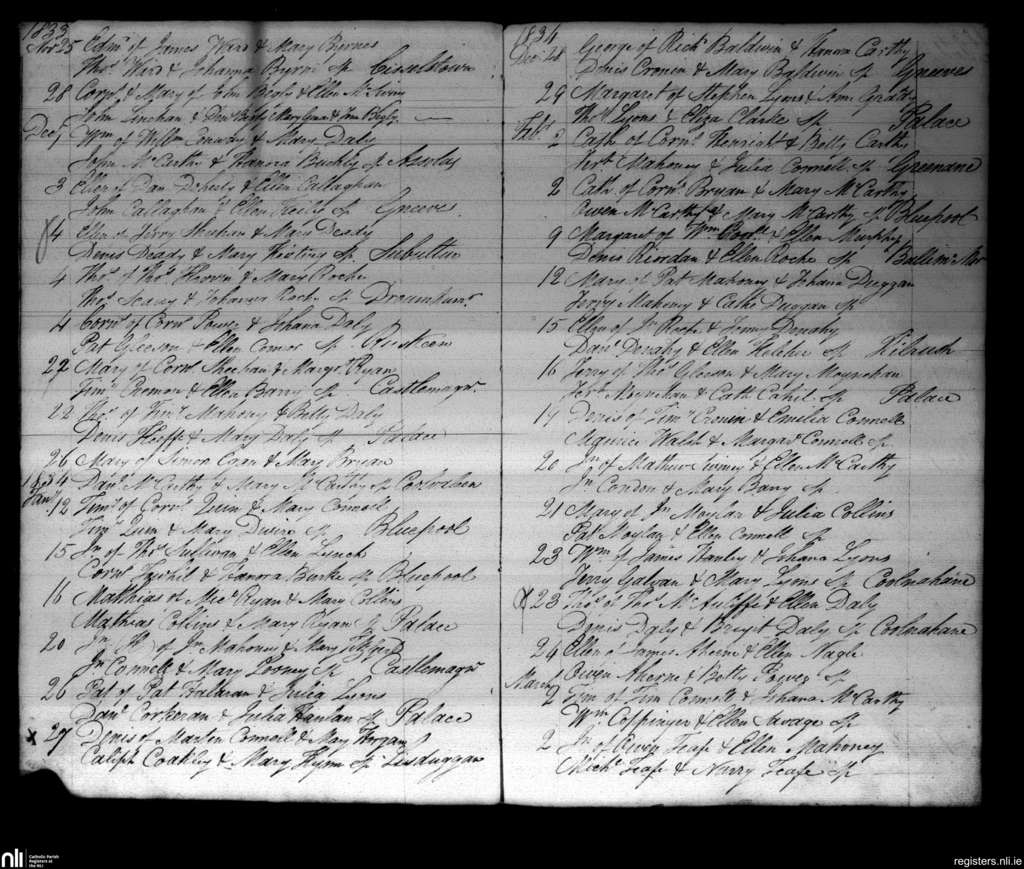 1833
Novr 25 Edmd of James Ward & Mary Byrnes
Thos Ward & Johanna Byrne Sp
28 Cornl & Mary of John Begly & Ellen
John Linehan & Mary & Jno Begly
Decr 1 Wm of Willm & Mary Daly
John McCarthy & Hanora Buckly Sp
3 Ellen of Dan Doherty & Ellen Callaghan
John Callaghan & Ellen Sp Greeve
4 Ellen of Jerry Sheehan & Mary Deady
Denis Deady & Mary Sp Subulter
4 Thos of Thos & Mary Roche
Thos & Johanna Roche Sp
4 Cornl of Cornl Power & Johana Daly
Pat Gleeson & Ellen Connor Sp Ruskeen
22 Mary of Cornl Sheehan & Margt Ryan
Timy & Ellen Barry Sp Castlemagr
22 Thos of Timy Mahony & Betty Daly
Denis Keeffe & Mary Daly Sp Palace
26 Mary of Simon Egan & Mary Bryan
1834 Danl McCarthy & Mary McCarthy Sp
Jany 12 Timy of Cornl Quin & Mary Connell
Timy Quin & Mary Divine Sp Bluepool
15 Jn of Thos Sullivan & Ellen Lynch
Cornl & Hanora Burke Sp Bluepool
16 Mathias of Micl Ryan & Mary Collins
Mathias Collins & Mary Ryan Sp Palace
20 Jn of Jn Mahoney & Mary
Jn Connell & Mary Looney Sp Castlemagr
26 Pat of Pat Halanan & Julia Lyons
Danl Corkeran & Julia Hanlan Sp Palace
x 27 Denis of Marten Connell & Mary Horgan
Caleph Coakley & Mary Flynn Sp Lisduggan
1834
28 George of Richd Baldwin & Hanora Carthy
Denis Cronin & Mary Baldwin Sp Greeves
29 Margaret of Stephen Lyons & Anne
Thos Lyons & Eliza Clarke Sp Palace
Feby 2 Cath of Cornl Henright & Betty Carthy
Mahoney & Julia Connell Sp Greenane
2 Cath of Cornl Bryan & Mary McCarthy
Owen McCarthy & Mary McCarthy Sp Bluepool
9 Margaret of Wm & Ellen Murphy
Denis Riordan & Ellen Roche Sp
12 Mary of Pat Mahoney & Johana Duggan
Jerry Mahoney & Cathe Duggan Sp
15 Ellen of Jn Roche & Denahy
Danl Denahy & Ellen Kelcher Sp Kilrush
16 Jerry of Thos Gleeson & Mary Moynehan
Moynehan & Cath Cahil Sp Palace
17 Denis of Timy Cronin & Emilia Connell
Maurice Walsh & Margart Connell Sp
20 Jn of Mathew & Ellen McCarthy
Jn Condon & Mary Barry Sp
21 Mary of Jn Moylan & Julia Collins
Pat Moylan & Ellen Connell Sp
23 Wm of James Hanley & Johana Lyons
Jerry Galvan & Mary Lyons Sp Coolnahane
23 Thos of Thos McAuliffe & Ellen Daly
Denis Daly & Bregt Daly Sp Coolnahane
24 Ellen of James Aherne & Ellen Nagle
Owen Aherne & Betty Power Sp
March 2 Tim of Tim Connell & Johana McCarthy
Wm Coppinger & Ellen Savage Sp
2 Jn of Owen Leafe & Ellen Mahoney
Michl Leafe & Norry Leafe Sp
nli
Catholic Parish
Registers at
the NLI
registers.nli.ie